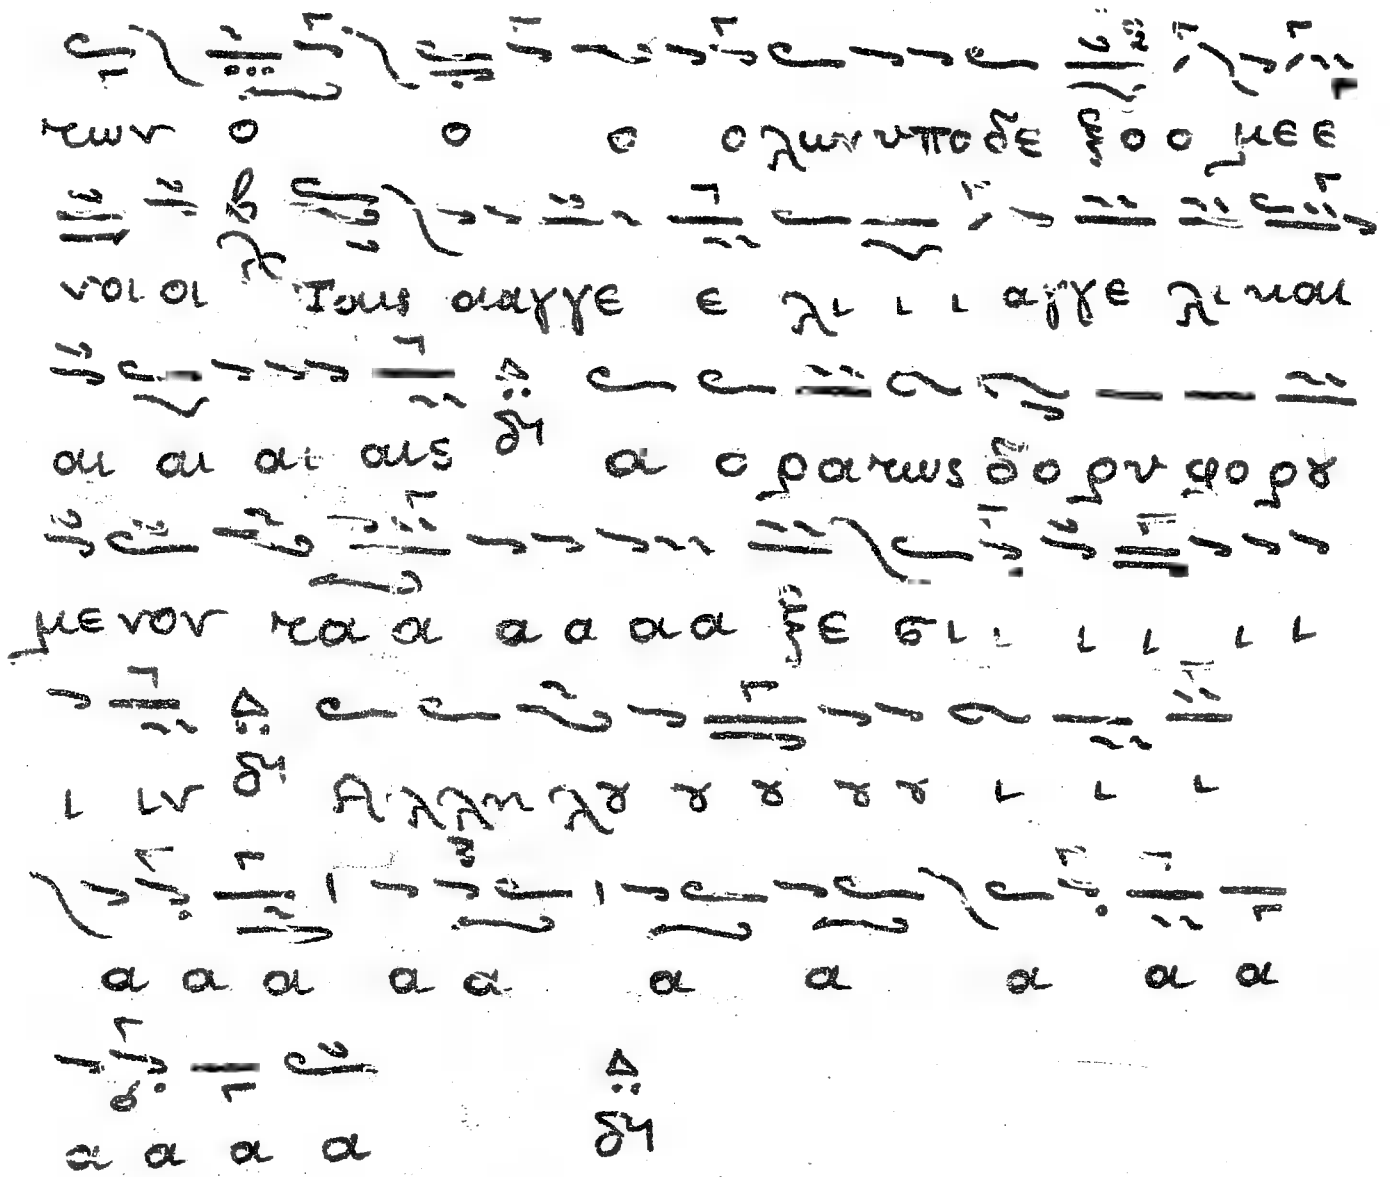 των ο ο ο ολων υποδε ξο ο με ε
νοι οι Ταις αιαγγε ε λι ι ι αγγε λι και
αι αι αι αις δη α ο ρατως δο ρυ φο ρȣ
μενον τα α α α α α α ξε σι ι ι ι ι ι ι
ι ιν δη Αλληλȣ ȣ ȣ ȣ ȣ ι ι ι
α α α α α α α α α α
α α α α δη